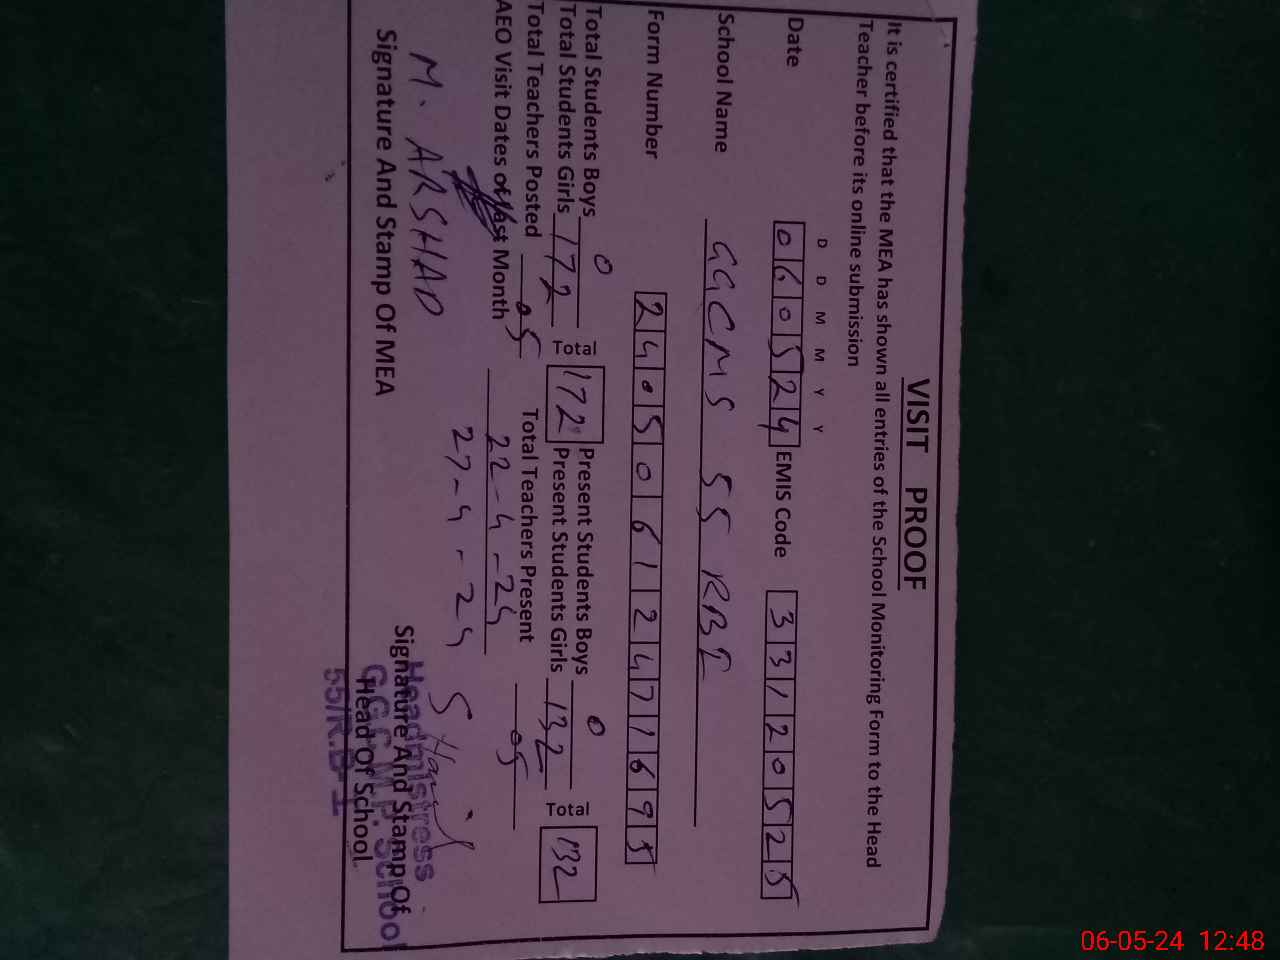 VISIT PROOF
It is certified that the MEA has shown all entries of the School Monitoring Form to the Head
Teacher before its online submission
D D M M Y Y
Date 060524 EMIS Code 33120525
School Name GGCMS 55 RBI
Form Number 240506124771695
Total Students Boys 0 Total 172 Present Students Boys 0 Total 132
Total Students Girls 172 Present Students Girls 132
Total Teachers Posted 05 Total Teachers Present 05
AEO Visit Dates of last Month 22-4-24
27-4-24
M. ARSHAD
Signature And Stamp Of MEA
Signature And Stamp Of
Head Of School
Headmistress
G.G.C.M.P. School
55/R.B-I
06-05-24 12:48